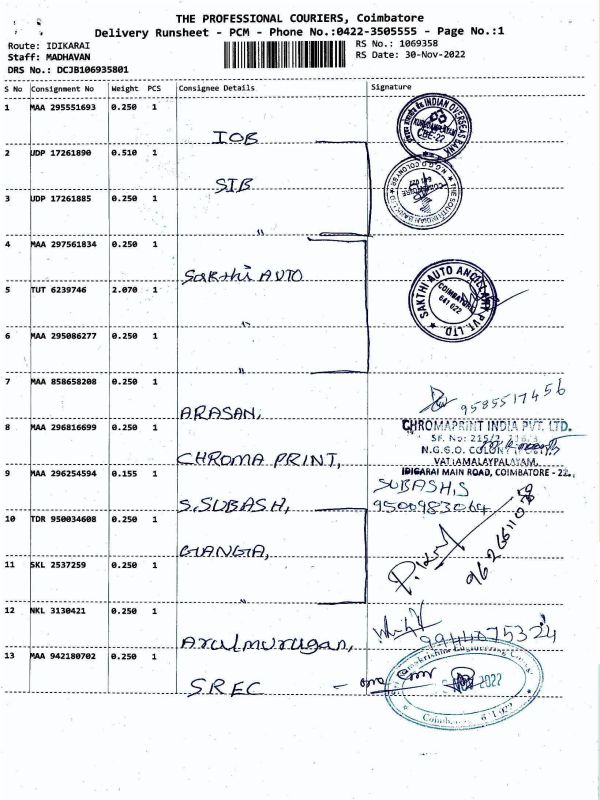 THE PROFESSIONAL COURIERS, Coimbatore
Delivery Runsheet - PCM - Phone No.:0422-3505555 - Page No.:1
Route: IDIKARAI
Staff: MADHAVAN
DRS No.: DCJB106935801
RS No.: 1069358
RS Date: 30-Nov-2022
S No Consignment No Weight PCS Consignee Details Signature
1 MAA 295551693 0.250 1
IOB
INDIAN OVERSEAS BANK
CBE-22
2 UDP 17261890 0.510 1
SIB
N.G.G.O COLONY BR.
THE SOUTH INDIAN BANK LTD
3 UDP 17261885 0.250 1
"
4 MAA 297561834 0.250 1
Sakthi AUTO
SAKTHI AUTO ANCILLARY PVT. LTD.
COIMBATORE
641 022
5 TUT 6239746 2.070 1
"
6 MAA 295086277 0.250 1
"
7 MAA 858658208 0.250 1
ARASAN,
9585517456
8 MAA 296816699 0.250 1
CHROMA PRINT,
CHROMAPRINT INDIA PVT. LTD.
SF. No: 215/2, 216/3
N.G.G.O. COLONY (POST)
VATIAMALAYPALAYAM,
IDIGARAI MAIN ROAD, COIMBATORE - 22.
9 MAA 296254594 0.155 1
S.SUBASH,
SUBASH.S
9500983064
10 TDR 950034608 0.250 1
GANGA,
11 SKL 2537259 0.250 1
"
12 NKL 3130421 0.250 1
Arulmurugan,
9944075324
13 MAA 942180702 0.250 1
SREC
2022